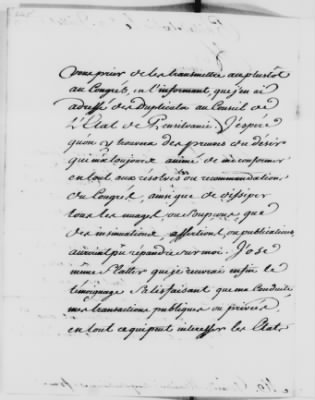 vous prier de les transmettre au plustot
au Congrés, en l'informant, que j'en ai
adressé des Duplicata au Conseil de
L'Etat de Pensilvanie. J'espére
qu'on y trouvera des preuves du désir
qui m'a toujours animé de me conformer
en tout aux résolves ou recommendations
du Congrés, ainsi que de dissiper
tous les nuages ou soupçons que
des insinuations, assertions, ou publications
auroient pu répandre sur moi. J'ose
même flatter que je recevrai enfin le
témoignage satisfaisant que ma conduite,
mes transactions publiques ou privées,
en tout ce qui peut interesser les Etats